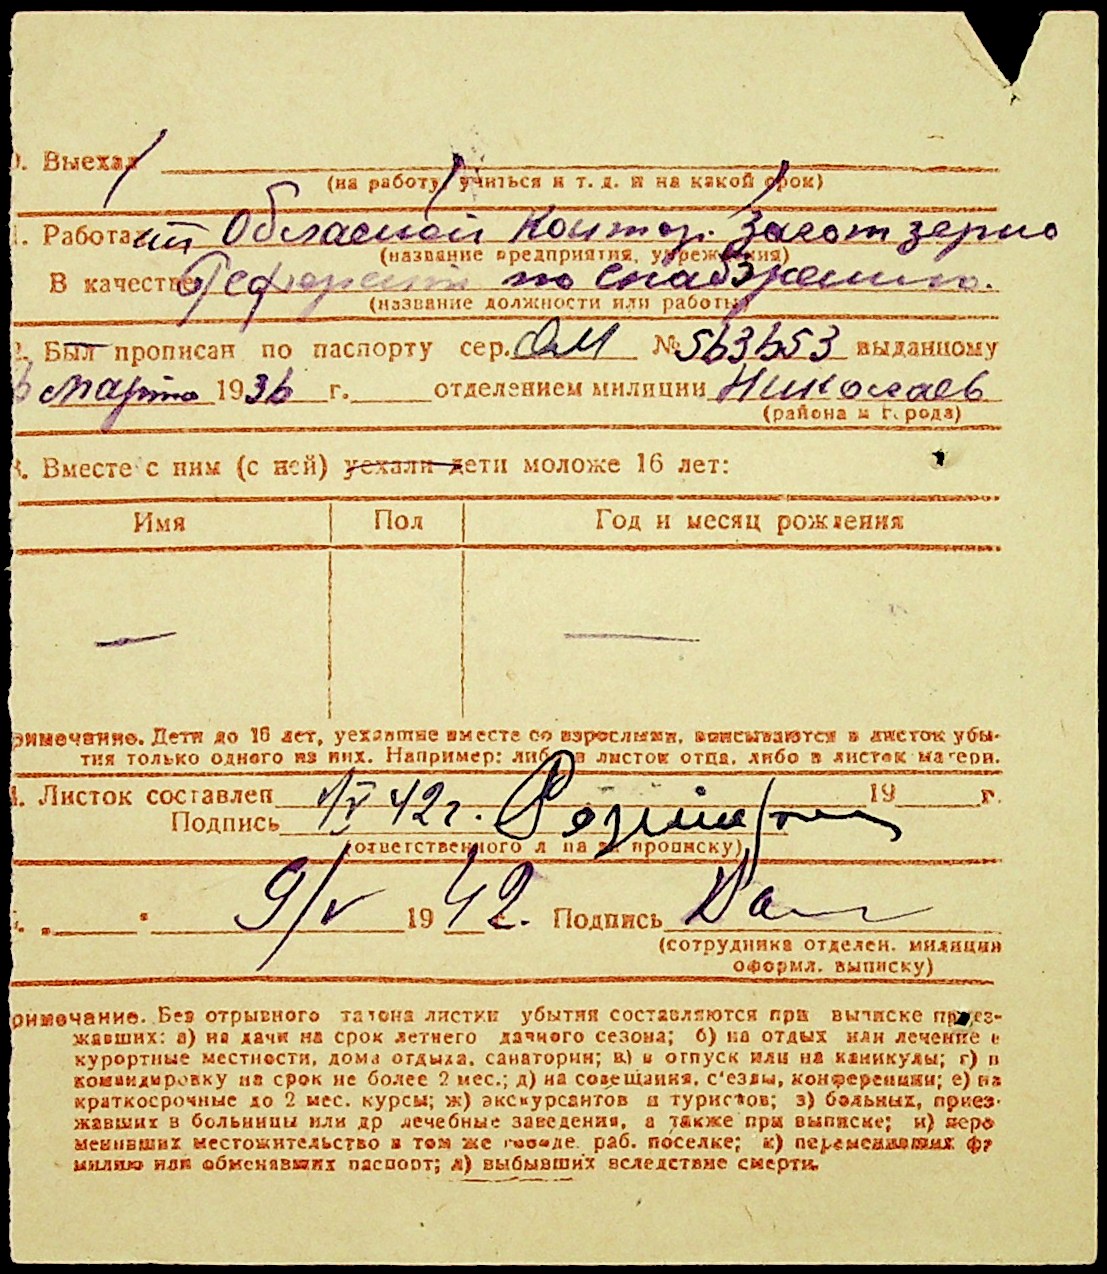 0. Выехал
(на работу, учиться и т. д. и на какой срок)
1. Работает Обласной Контор. Заготзерно
(название предприятия, учреждения)
В качестве Референт по снабжению.
(название должности или работы)
2. Был прописан по паспорту сер. № 563653 выданному
6 марта 1936 г. отделением милиции Николаев
(района и города)
3. Вместе с ним (с ней) уехали дети моложе 16 лет:
Имя Пол Год и месяц рождения
— —
римечание. Дети до 16 лет, уехавшие вместе со взрослыми, вписываются в листок убы-
тия только одного из них. Например: либо в листок отца, либо в листок матери.
4. Листок составлен 1/V 42 г. 19 г.
Подпись
(ответственного л ца за прописку)
9/V 1942. Подпись
(сотрудника отделен. милиции
оформл. выписку)
римечание. Без отрывного талона листки убытия составляются при выписке приез-
жавших: а) на дачи на срок летнего дачного сезона; б) на отдых или лечение в
курортные местности, дома отдыха, санатории; в) в отпуск или на каникулы; г) в
командировку на срок не более 2 мес.; д) на совещания, с'езды, конференции; е) на
краткосрочные до 2 мес. курсы; ж) экскурсантов и туристов; з) больных, приез-
жавших в больницы или др лечебные заведения, а также при выписке; и) пере
менивших местожительство в том же городе, раб. поселке; к) переменивших фа
милию или обменявших паспорт; л) выбывших вследствие смерти.